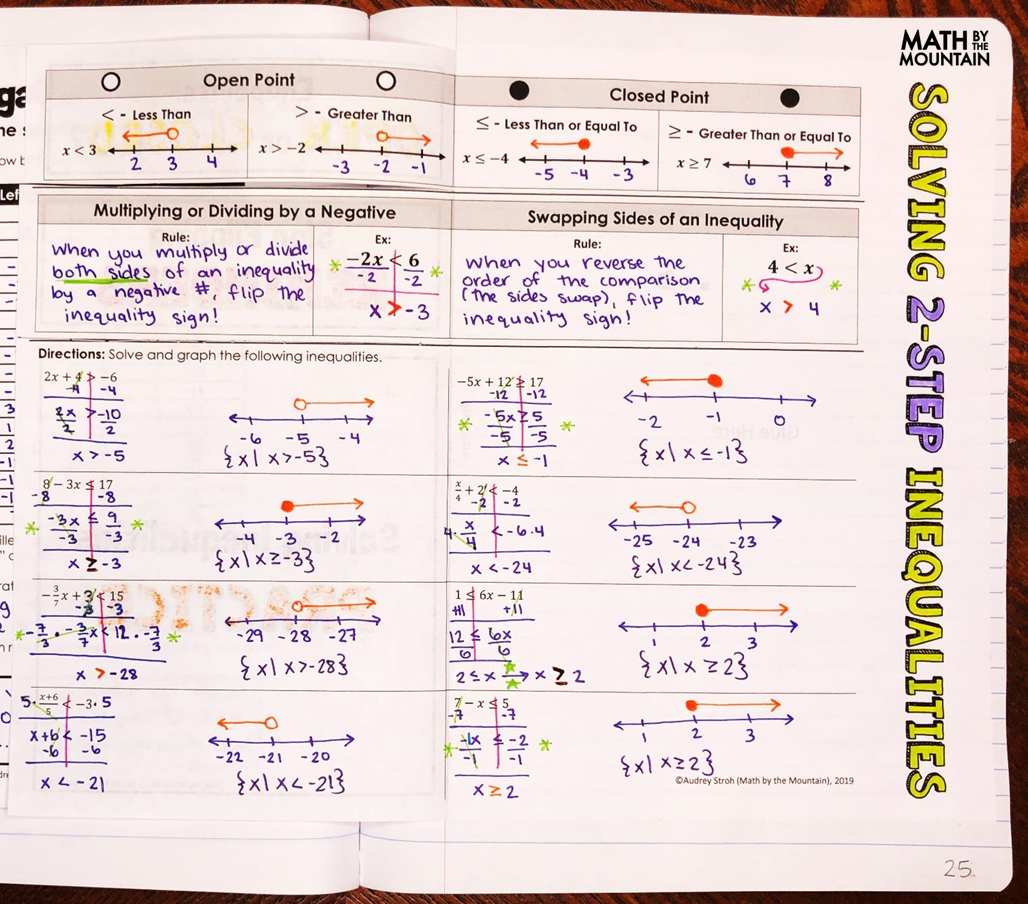 MATH BY THE MOUNTAIN
SOLVING 2-STEP INEQUALITIES
Open Point
< - Less Than
x < 3
2 3 4
> - Greater Than
x > −2
-3 -2 -1
Closed Point
≤ - Less Than or Equal To
x ≤ −4
-5 -4 -3
≥ - Greater Than or Equal To
x ≥ 7
6 7 8
Multiplying or Dividing by a Negative
Rule:
When you multiply or divide
both sides of an inequality
by a negative #, flip the
inequality sign!
Ex:
* −2x < 6 *
-2 -2
x > -3
Swapping Sides of an Inequality
Rule:
When you reverse the
order of the comparison
(the sides swap), flip the
inequality sign!
Ex:
4 < x
* *
x > 4
Directions: Solve and graph the following inequalities.
2x + 4 > −6
-4 -4
2x > -10
2 2
x > -5
-6 -5 -4
{x| x>-5}
−5x + 12 ≥ 17
-12 -12
* -5x ≥ 5 *
-5 -5
x ≤ -1
-2 -1 0
{x| x≤-1}
8 − 3x ≤ 17
-8 -8
* -3x ≤ 9 *
-3 -3
x ≥ -3
-4 -3 -2
{x| x≥-3}
x/4 + 2 < −4
-2 -2
4· x/4 < -6·4
x < -24
-25 -24 -23
{x| x<-24}
−3/7 x + 3 < 15
-3 -3
* -7/3 · -3/7 x < 12 · -7/3 *
x > -28
-29 -28 -27
{x| x>-28}
1 ≤ 6x − 11
+11 +11
12 ≤ 6x
6 6
2 ≤ x → x ≥ 2
1 2 3
{x| x≥2}
5· x+6/5 < −3·5
x+6 < -15
-6 -6
x < -21
-22 -21 -20
{x| x<-21}
7 − x ≤ 5
-7 -7
* -1x ≤ -2 *
-1 -1
x ≥ 2
1 2 3
{x| x≥2}
©Audrey Stroh (Math by the Mountain), 2019
25